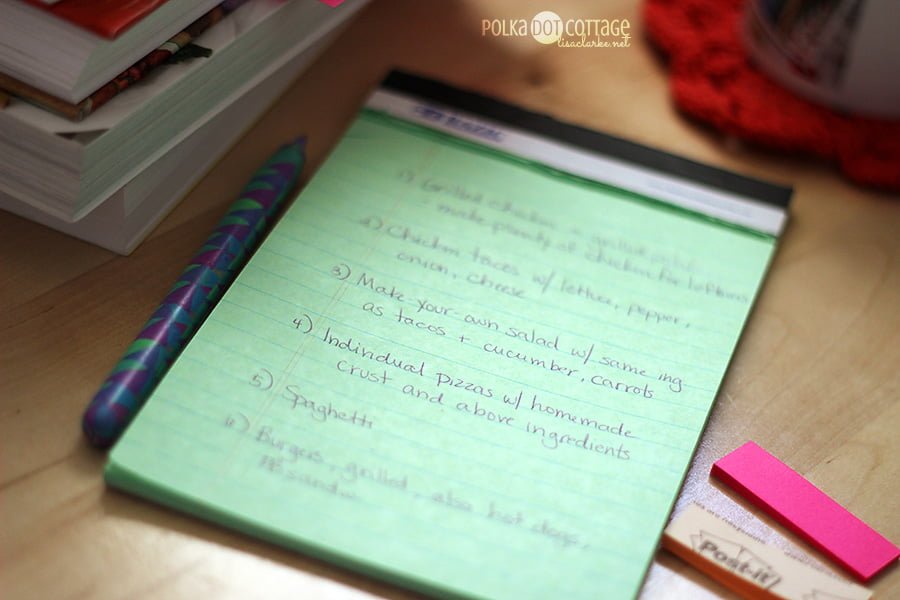 POLKA DOT COTTAGE
lisaclarke.net
1) Grilled chicken + grilled
- make plenty of chicken for leftovers
2) Chicken tacos w/ lettuce, pepper,
onion, cheese
3) Make-your-own salad w/ same ing
as tacos + cucumber, carrots
4) Individual pizzas w/ homemade
crust and above ingredients
5) Spaghetti
6) Burgers, grilled, also hot dogs,
Post-it